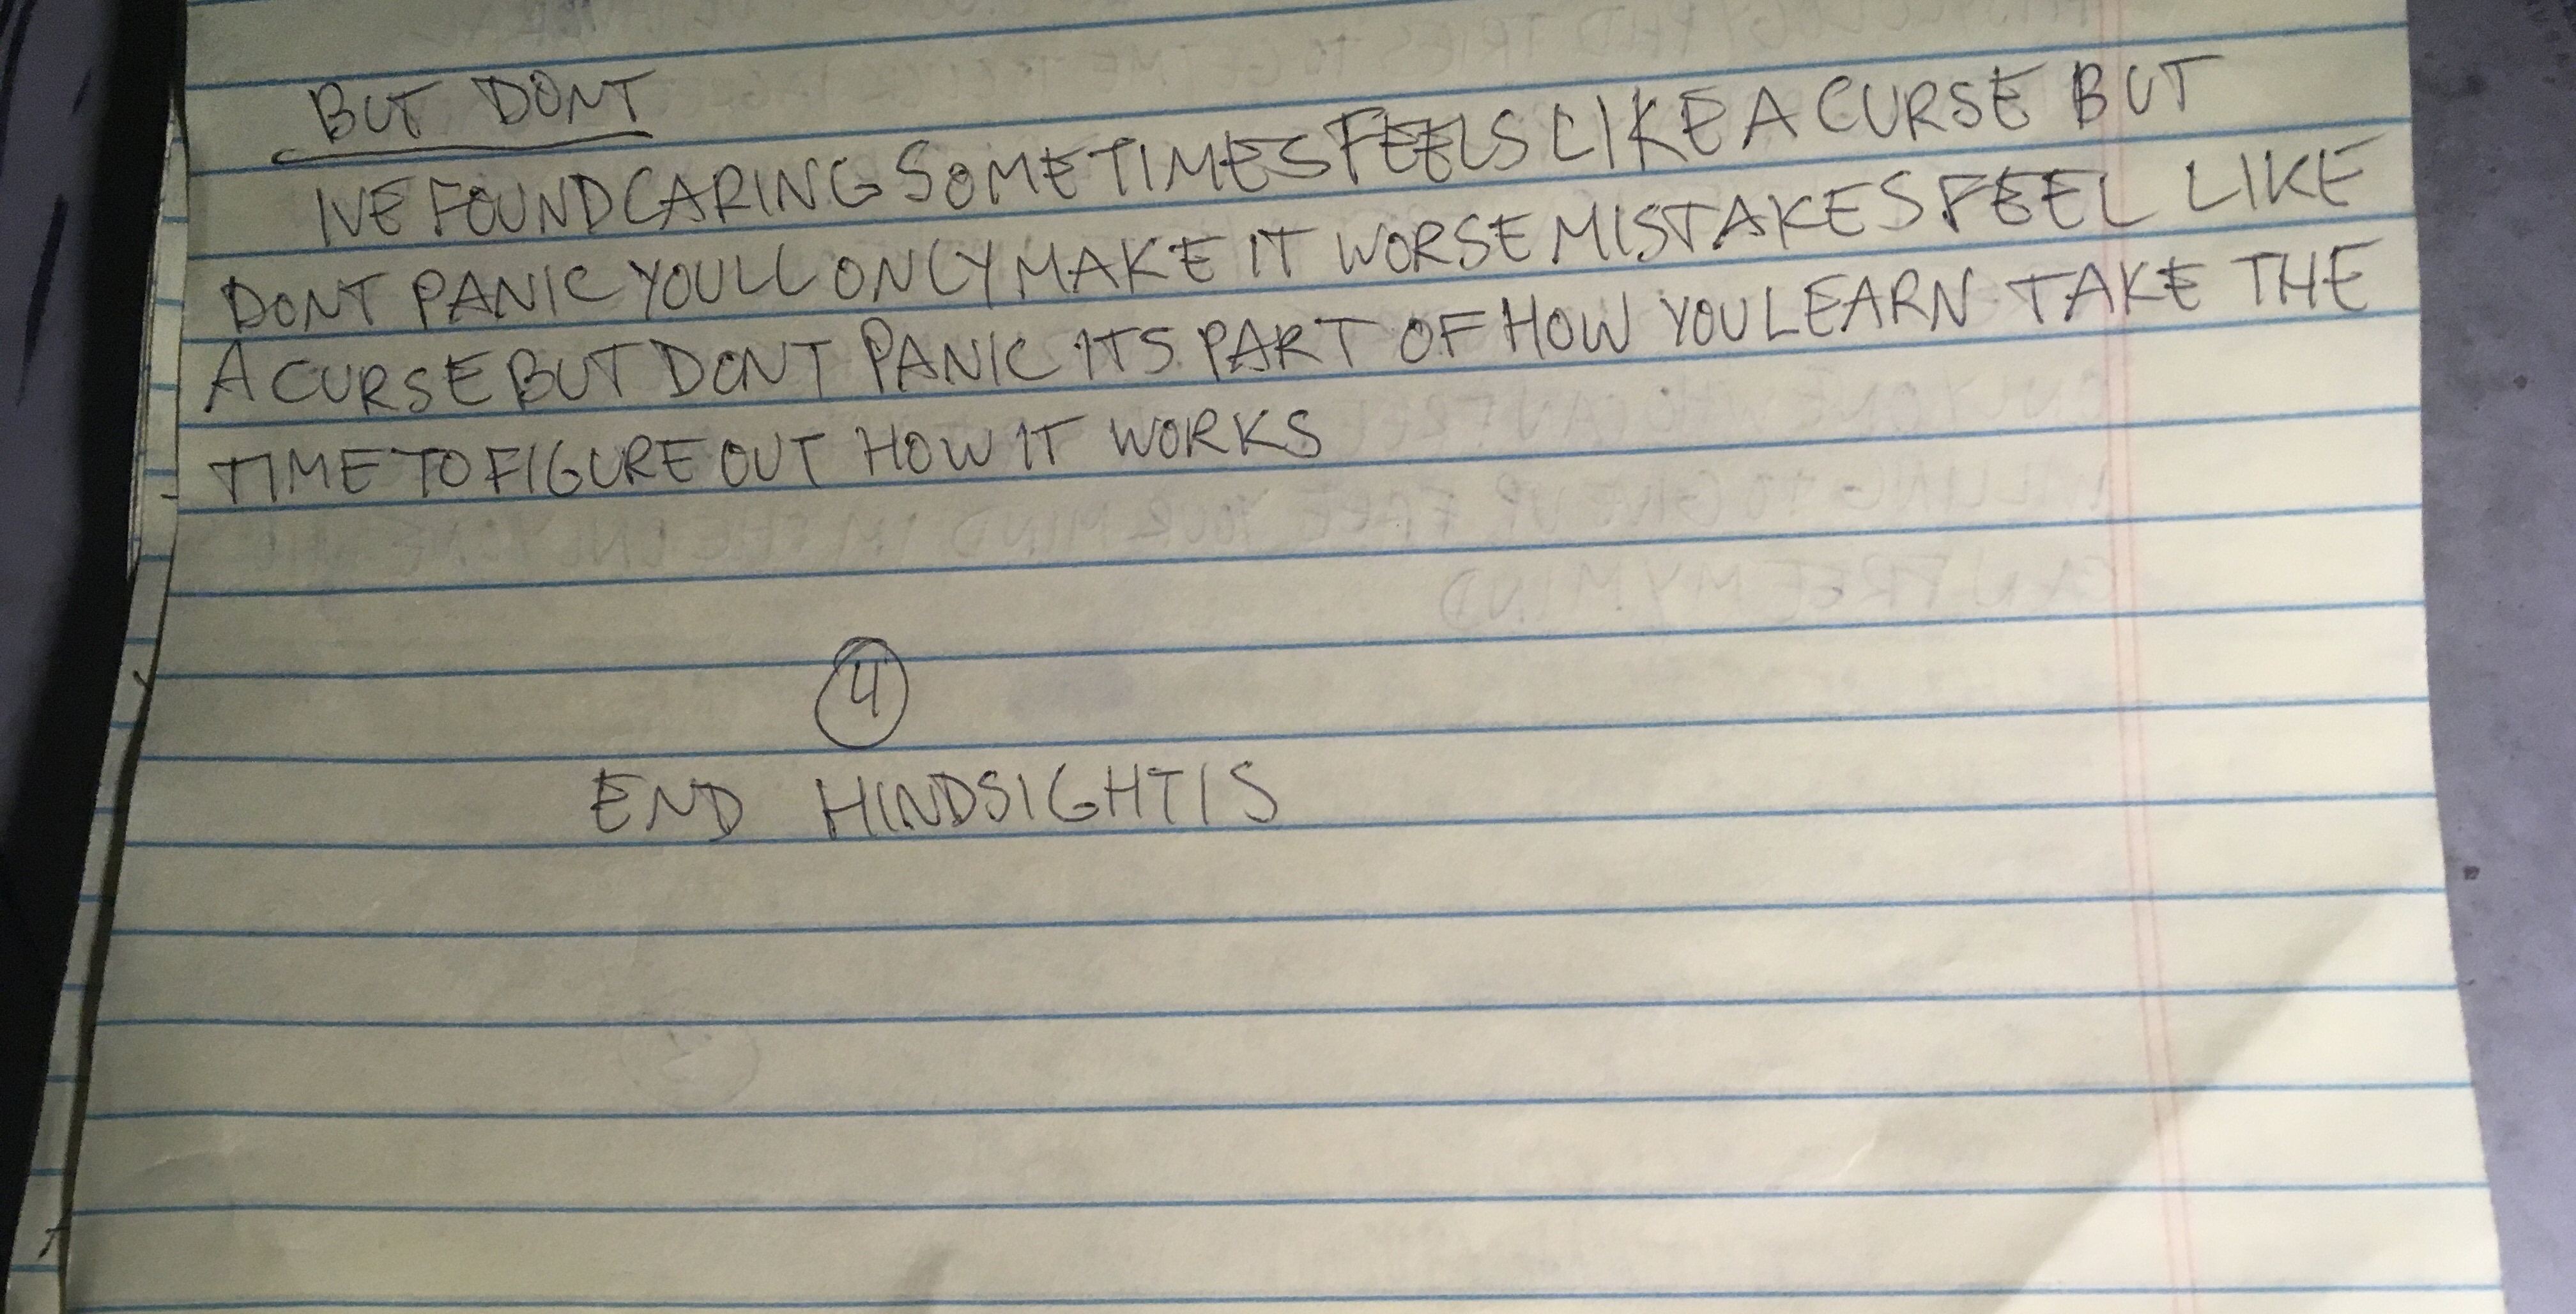 BUT DONT
IVE FOUND CARING SOMETIMES FEELS LIKE A CURSE BUT
DONT PANIC YOULL ONLY MAKE IT WORSE MISTAKES FEEL LIKE
A CURSE BUT DONT PANIC ITS PART OF HOW YOU LEARN TAKE THE
TIME TO FIGURE OUT HOW IT WORKS
4
END HINDSIGHT IS